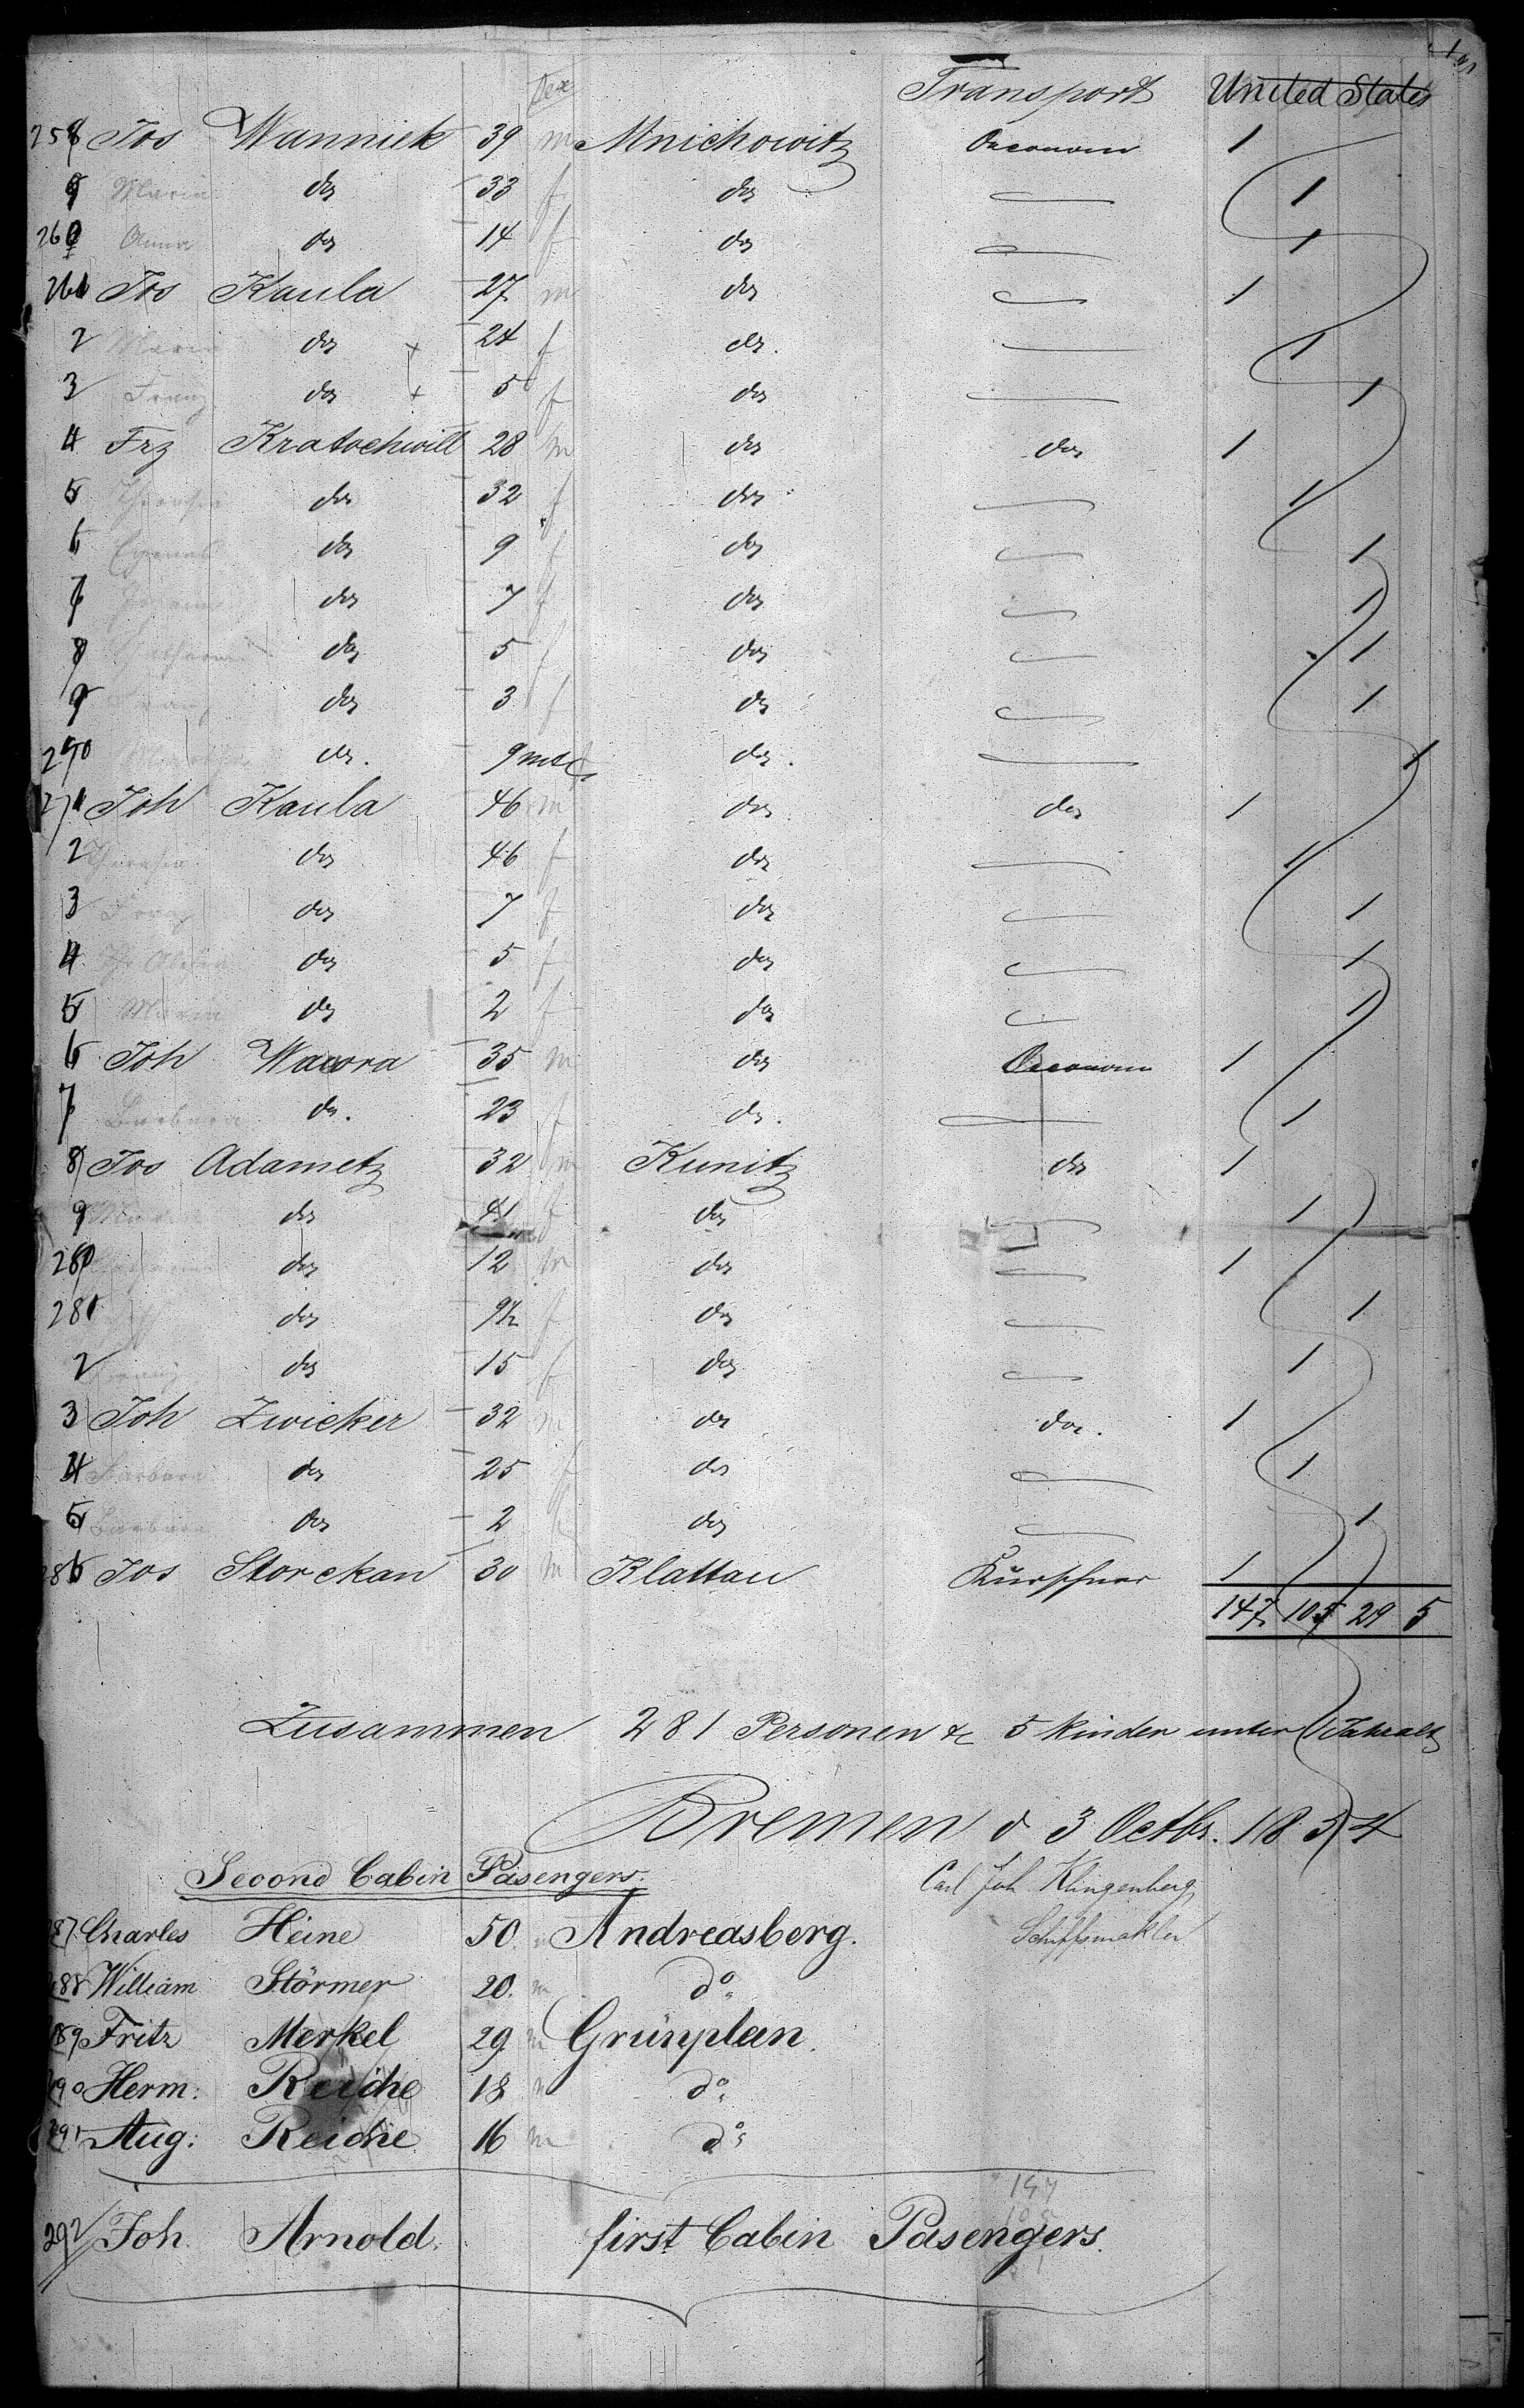 Sex Transport United States
258 Jos Wanniek 39 m Mnichowitz Oeconom 1
9 Maria do 33 f do 1
260 Anna do 14 f do 1
261 Jos Kaula 27 m do 1
2 Maria do 24 f do. 1
3 Franz do 5 f do 1
4 Frz Kratochwill 28 m do do 1
5 Theresia do 32 f do 1
6 do 9 f do 1
7 do 7 f do 1
8 Catharina do 5 f do 1
9 Franz do 3 f do 1
270 do. 9 mt f do. 1
271 Joh Kaula 46 m do do 1
2 Theresia do 46 f do 1
3 Franz do 7 f do 1
4 do 5 f do 1
5 Maria do 2 f do 1
6 Joh Wawra 35 m do Oeconom 1
7 Barbara do. 23 f do. 1
8 Jos Adametz 32 m Kunitz do 1
9 do 41 f do 1 1
280 do 12 m do 1
281 do 9½ f do 1
2 Franz do 15 f do 1
3 Joh Zwicker 32 m do do. 1
4 Barbara do 25 f do 1
5 Barbara do 2 f do 1
286 Jos Storckan 30 m Klattau Kürschner 1
147 105 29 5
Zusammen 281 Personen & 5 Kinder unter 1 Jahr alt
Bremen d 3 Octbr. 1854
Second Cabin Pasengers. Carl Joh Klingenberg
287 Charles Heine 50. m Andreasberg. Schiffsmakler
288 William Störmer 20. m do
289 Fritz Merkel 29 m Grünplan.
290 Herm: Reiche 18 m do
291 Aug: Reiche 16 m do
147
105
292 Joh. Arnold. first Cabin Pasengers.